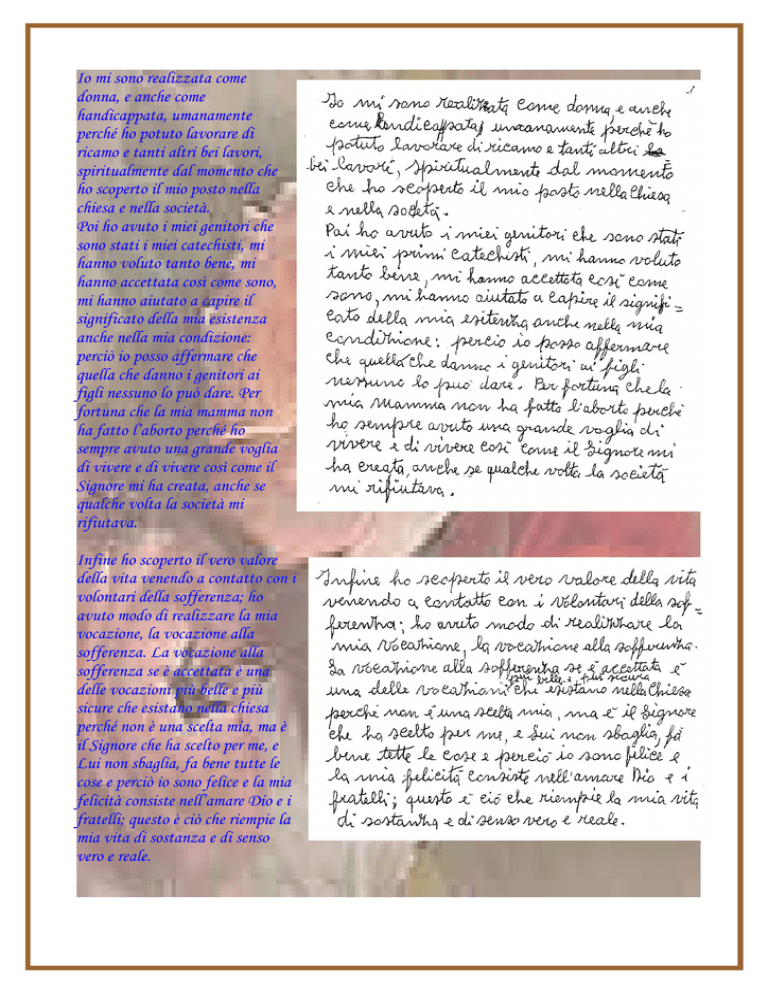 Io mi sono realizzata come
donna, e anche come
handicappata, umanamente
perché ho potuto lavorare di
ricamo e tanti altri bei lavori,
spiritualmente dal momento che
ho scoperto il mio posto nella
chiesa e nella società.
Poi ho avuto i miei genitori che
sono stati i miei catechisti, mi
hanno voluto tanto bene, mi
hanno accettata così come sono,
mi hanno aiutato a capire il
significato della mia esistenza
anche nella mia condizione:
perciò io posso affermare che
quella che danno i genitori ai
figli nessuno lo può dare. Per
fortuna che la mia mamma non
ha fatto l'aborto perché ho
sempre avuto una grande voglia
di vivere e di vivere così come il
Signore mi ha creata, anche se
qualche volta la società mi
rifiutava.
Io mi sono realizzata come donna, e anche
come handicappata, umanamente perché ho
potuto lavorare di ricamo e tanti altri
bei lavori, spiritualmente dal momento
che ho scoperto il mio posto nella Chiesa
e nella società.
Poi ho avuto i miei genitori che sono stati
i miei primi catechisti, mi hanno voluto
tanto bene, mi hanno accettata così come
sono, mi hanno aiutato a capire il signifi=
cato della mia esitenza anche nella mia
condizione: perciò io posso affermare
che quella che danno i genitori ai figli
nessuno lo può dare. Per fortuna che la
mia Mamma non ha fatto l'aborto perché
ho sempre avuto una grande voglia di
vivere e di vivere così come il Signore mi
ha creata, anche se qualche volta la società
mi rifiutava.
Infine ho scoperto il vero valore
della vita venendo a contatto con i
volontari della sofferenza; ho
avuto modo di realizzare la mia
vocazione, la vocazione alla
sofferenza. La vocazione alla
sofferenza se è accettata è una
delle vocazioni più belle e più
sicure che esistano nella chiesa
perché non è una scelta mia, ma è
il Signore che ha scelto per me, e
Lui non sbaglia, fa bene tutte le
cose e perciò io sono felice e la mia
felicità consiste nell'amare Dio e i
fratelli; questo è ciò che riempie la
mia vita di sostanza e di senso
vero e reale.
Infine ho scoperto il vero valore della vita
venendo a contatto con i Volontari della sof=
ferenza; ho avuto modo di realizzare la
mia Vocazione, la vocazione alla sofferenza.
La vocazione alla sofferenza se è accettata è
una delle vocazioni più belle e più sicura che esistano nella Chiesa
perché non è una scelta mia, ma è il Signore
che ha scelto per me, e Lui non sbaglia, fà
bene tette le cose e perciò io sono felice e
la mia felicità consiste nell'amare Dio e i
fratelli; questo è ciò che riempie la mia vita
di sostanza e di senso vero e reale.